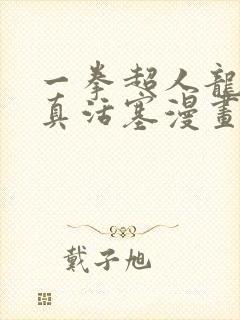 一拳超人龍
真活塞漫畫
戴子旭